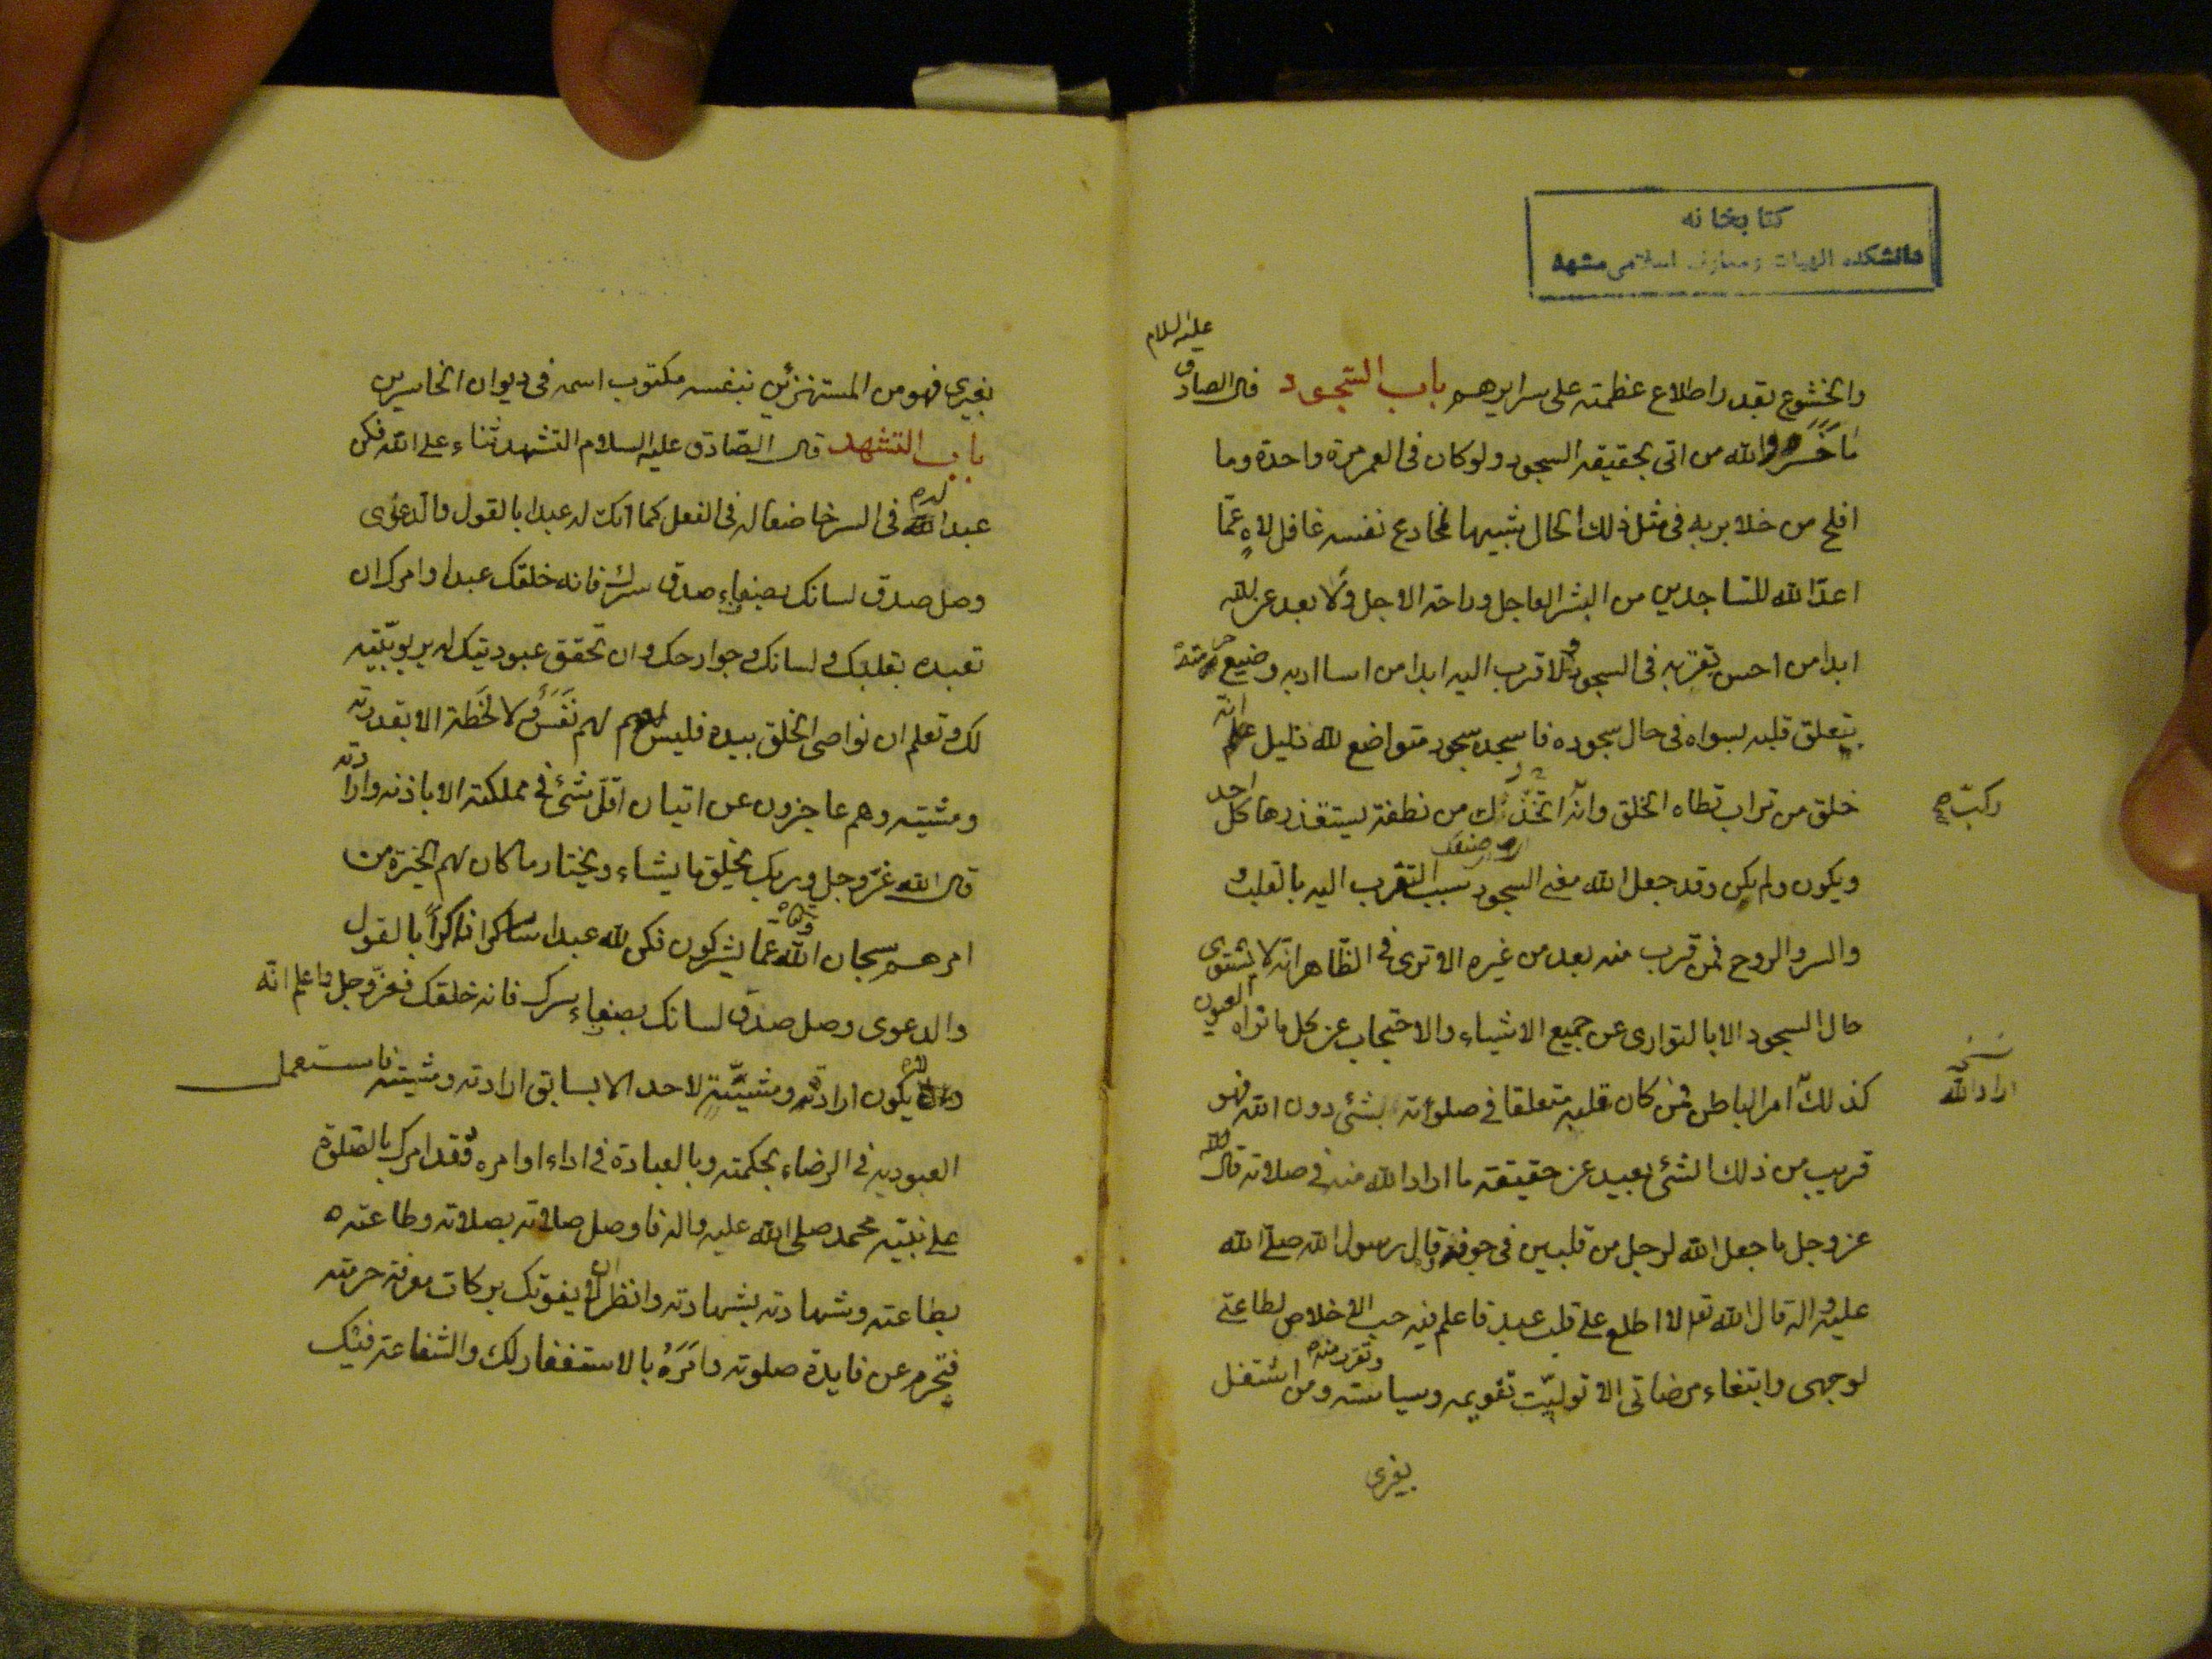 كتابخانه
دانشكده الهيات ومعارف اسلامى مشهد
والخشوع بقدر اطلاع عظمته على سرايرهم باب السجود قال الصادق عليه السلام
ما خسر والله من اتى بحقيقة السجود ولو كان فى العمر مرة واحدة وما
افلح من خلا بربه فى مثل ذلك الحال شبيها لمخادع نفسه غافل لاهٍ عمّا
اعدّ الله للساجدين من البشر العاجل وراحة الاجل ولا بعد عن الله
ابدا من احسن تقربه فى السجود ولا قرب اليه ابدا من اسا ادبه وضيع حرمته
بتعلق قلبه بسواه فى حال سجوده فاسجد سجود متواضع لله ذليل علم انه
خلق من تراب تطاه الخلق وانه اتخذك من نطفة يستقذرها كل احد
ركبّ
ويكون ولم يكن وقد جعل الله معنى السجود سبب التقرب اليه بالقلب و
والسر والروح فمن قرب منه بعد من غيره الا ترى فى الظاهر انه لا يستوى
حال السجود الا بالتوارى عن جميع الاشياء والاحتجاب عن كل ما تراه العيون
كذلك امر الباطن فمن كان قلبه متعلقا فى صلوته بشئ دون الله فهو
اراد الله
قريب من ذلك الشئ بعيد عن حقيقة ما اراد الله منه فى صلاته قال الله
عز وجل ما جعل الله لرجل من قلبين فى جوفه وقال رسول الله صلى الله
عليه واله قال الله تعالى لا اطلع على قلب عبد فاعلم فيه حب الاخلاص لطاعتى
لوجهى وابتغاء مرضاتى الا توليت تقويمه وسياسته ومن اشتغل
بغيرى
بغيرى فهو من المستهزئين بنفسه مكتوب اسمه فى ديوان الخاسرين
باب التشهد قال الصّادق عليه السلام التشهد ثناء على الله فكن
عبدا لله فى السر خاضعا له فى الفعل كما انك له عبدا بالقول والدعوى
وصل صدق لسانك بصفاء صدق سرك فانه خلقك عبدا وامرك ان
تعبده بقلبك ولسانك وجوارحك وان تحقق عبوديتك له بربوبيّته
لك وتعلم ان نواصى الخلق بيده فليس لهم نَفَس ولا لَحْظة الا بقدرته
ومشيته وهم عاجزون عن اتيان اقل شئ فى مملكته الا باذنه وارادته
قال الله عزّ وجل وربك يخلق ما يشاء ويختار ما كان لهم الخيرة من
امرهم سبحان الله عما يشركون فكن لله عبدا شاكرا ذاكراً بالقول
والدعوى وصل صدق لسانك بصفاء سرك فانه خلقك فعزّ وجل واعلم انه
يكون ارادة ومشيّة لاحد الا بسابق ارادته ومشيته فاستعمل
العبوديه فى الرضاء بحكمته وبالعبادة فى اداء اوامره فقد امرك بالصّلوة
على نبيّه محمد صلى الله عليه واله فاوصل صلاته بصلاته وطاعته
بطاعته وشهادته بشهادته وانظر ان لا يفوتك بركات معرفة حرمته
فتحرم عن فايدة صلوته وامَرَهُ بالاستغفار لك والشفاعة فيك